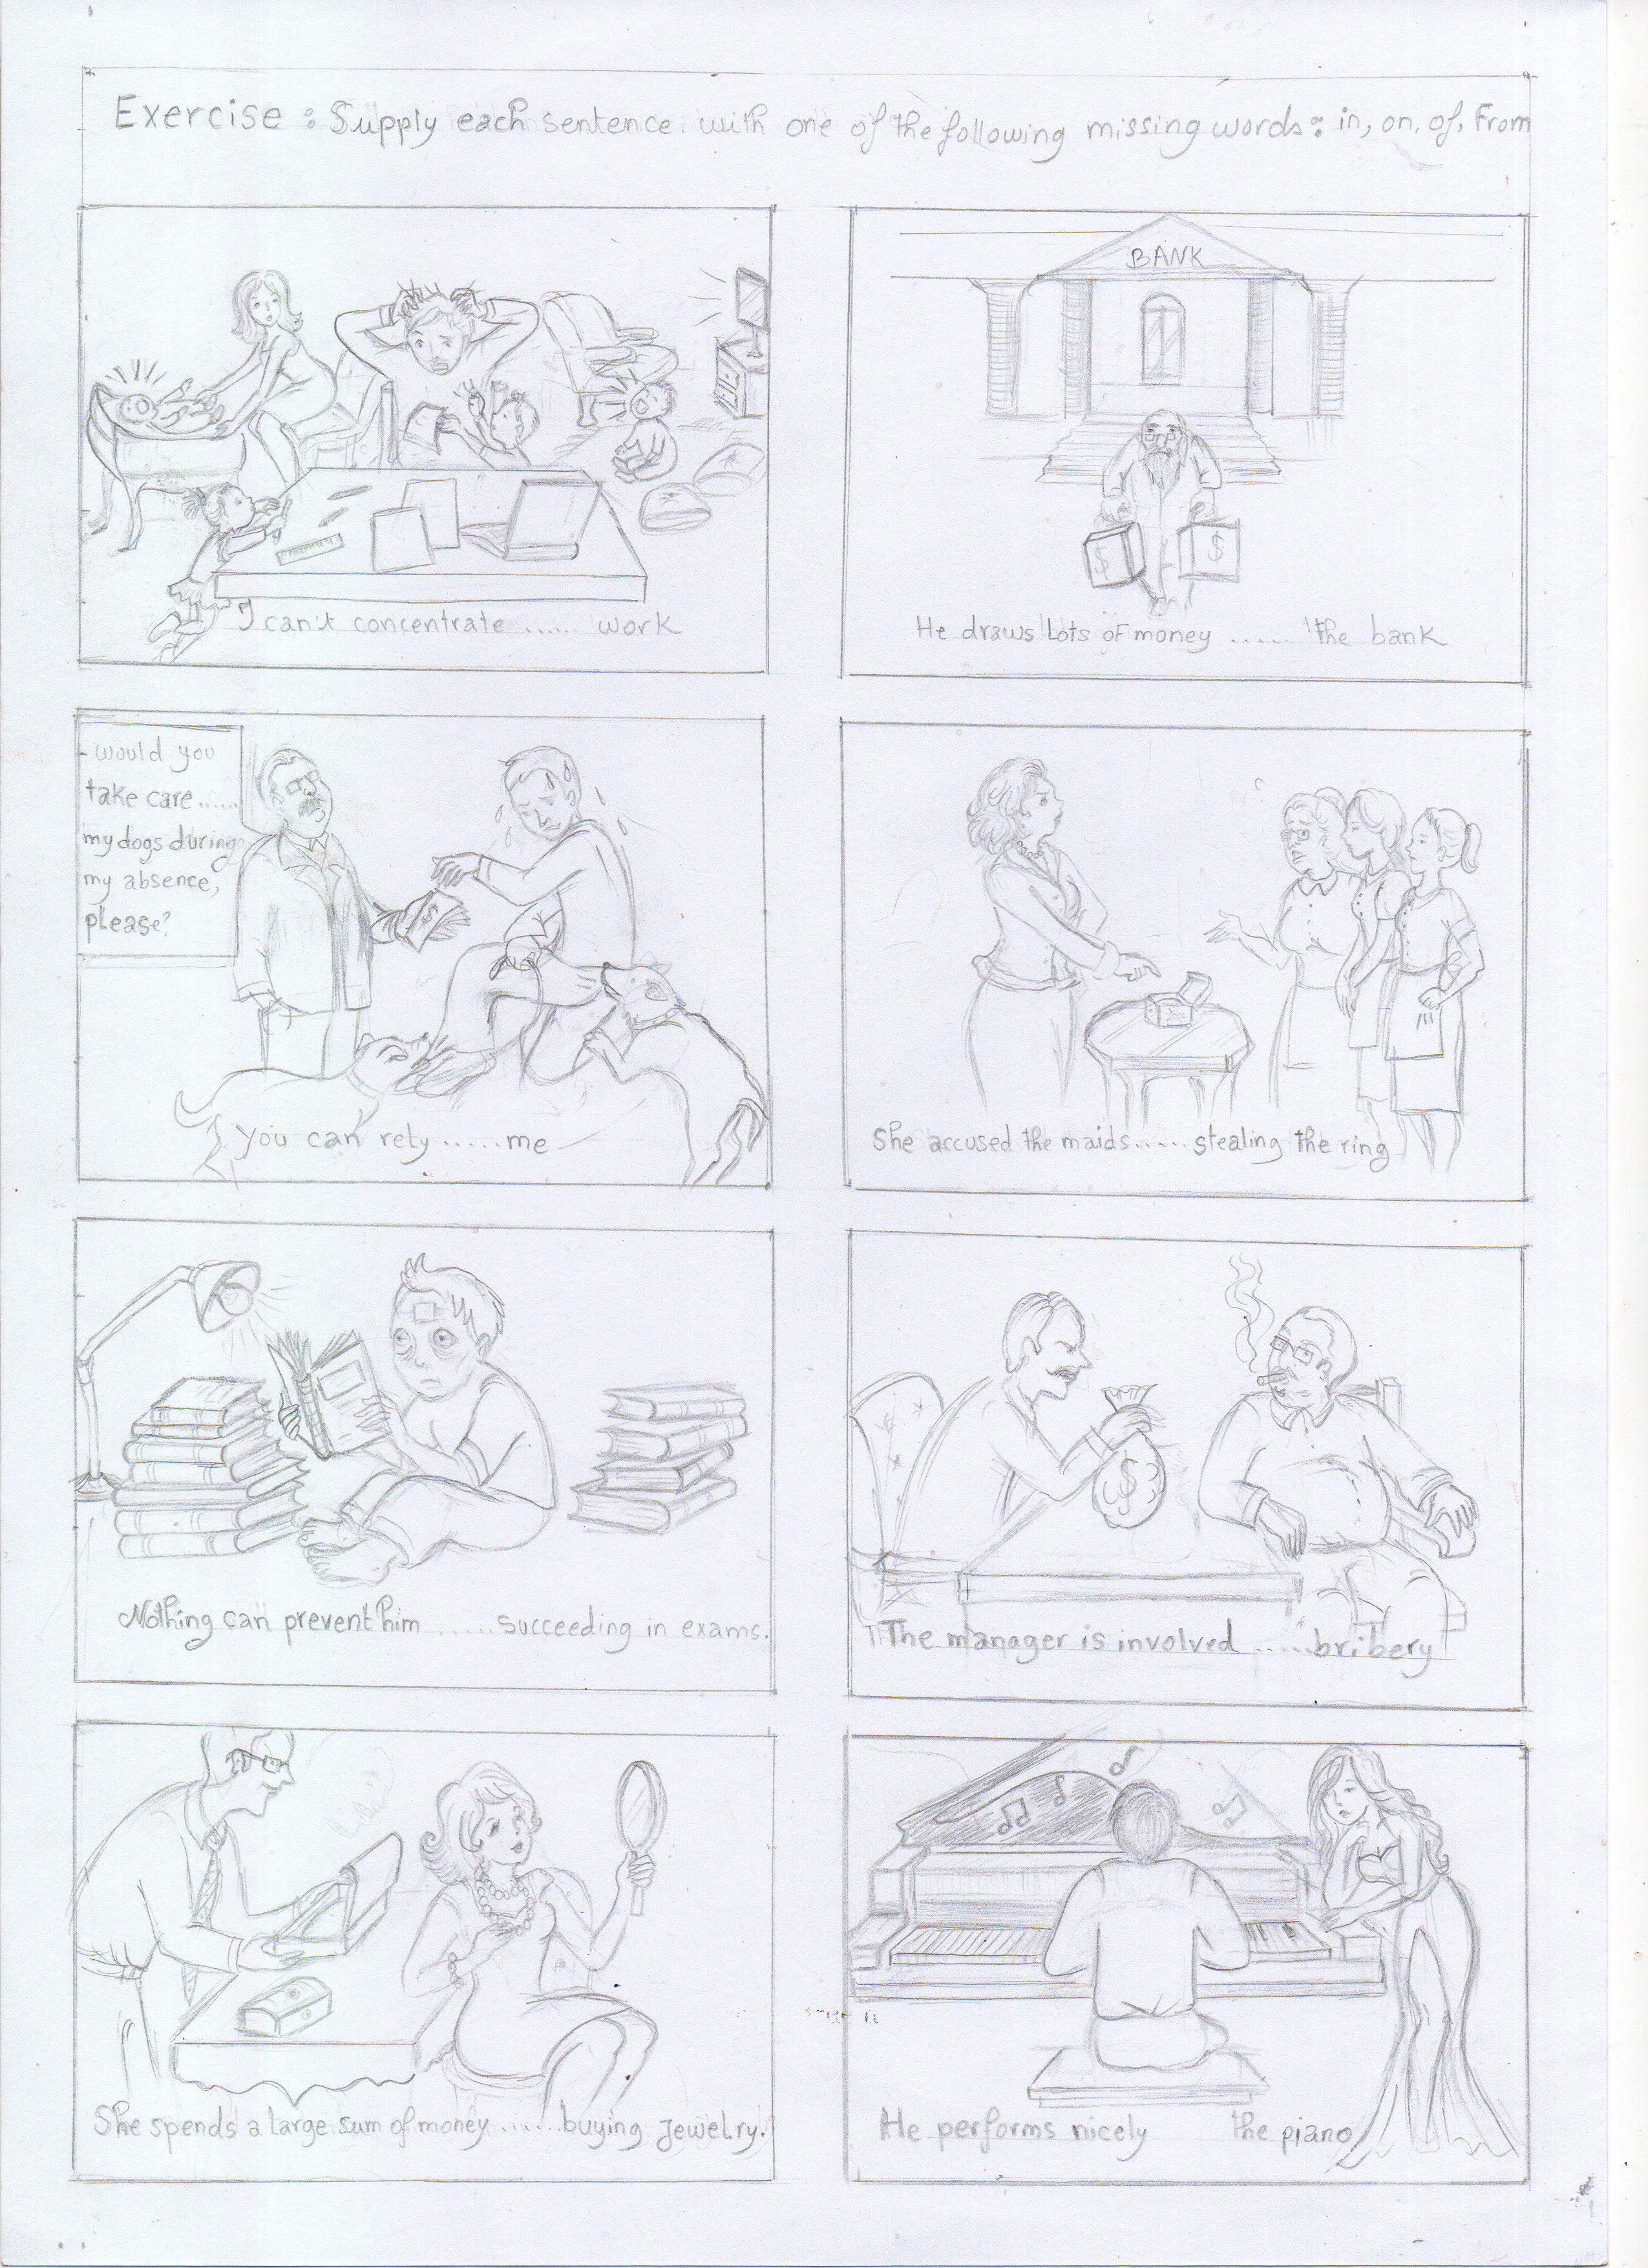 Exercise : Supply each sentence with one of the following missing words : in, on, of, From
I can't concentrate ...... work
BANK
$ $
He draws Lots of money ...... the bank
- would you
take care ......
my dogs during
my absence,
please?
$
You can rely ...... me
She accused the maids ...... stealing the ring
Nothing can prevent him ...... succeeding in exams.
$
The manager is involved ...... bribery
She spends a large sum of money ...... buying Jewelry.
He performs nicely the piano